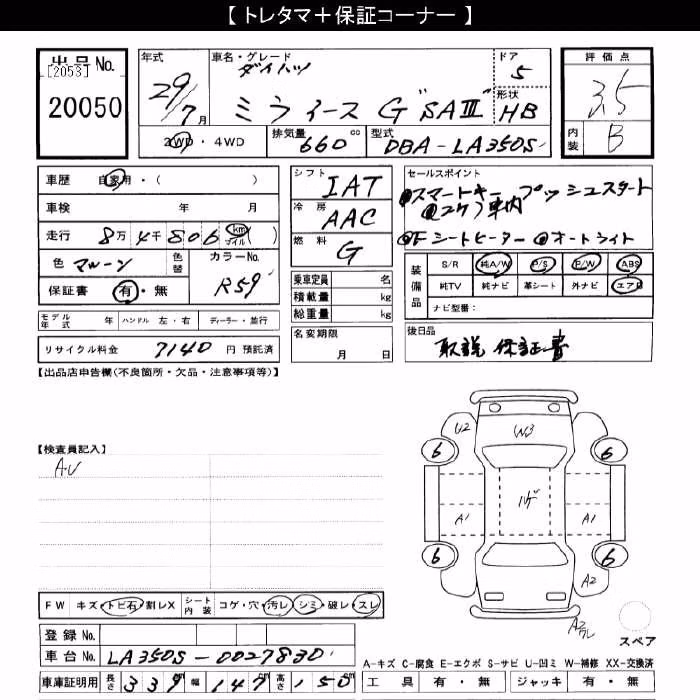 【 トレタマ＋保証コーナー 】
出品 No.
[2053]
20050
年式
29/7 月
車名・グレード
ダイハツ
ミライース G "SAⅢ"
ドア
5
形状
HB
評価点
3.5
内装
B
2WD ・ 4WD
排気量 660 cc
型式 DBA-LA350S
車歴 自家用・( )
車検 年 月
走行 8万 4千 806 km マイル ( )
色 マルーン 色替
カラーNo.
R59
保証書 有・無
シフト IAT
冷房 AAC
燃料 G
乗車定員 名
積載量 kg
総重量 kg
セールスポイント
スマートキー プッシュスタート
コゲ 車内
Fシートヒーター オートライト
装備品
S/R 純A/W P/S P/W ABS
純TV 純ナビ 革シート 外ナビ エアB
ナビ型番：
モデル年式 年 ハンドル 左・右 ディーラー・並行
名変期限 月 日
後日品
取説 保証書
リサイクル料金 7140 円 預託済
【出品店申告欄(不良箇所・欠品・注意事項等)】
【検査員記入】
AU
U2 W3
6 6
ハゲ
A1 A1
6 6
A2
A2
スペア
FW キズ・トビ石・割レX
シート内装 コゲ・穴・汚レ・シミ・破レ・スレ
登録 No.
車台 No. LA350S-0027830
A-キズ C-腐食 E-エクボ S-サビ U-凹ミ W-補修 XX-交換済
車庫証明用 長さ 339 幅 147 高さ 150
工具 有・無 ジャッキ 有・無